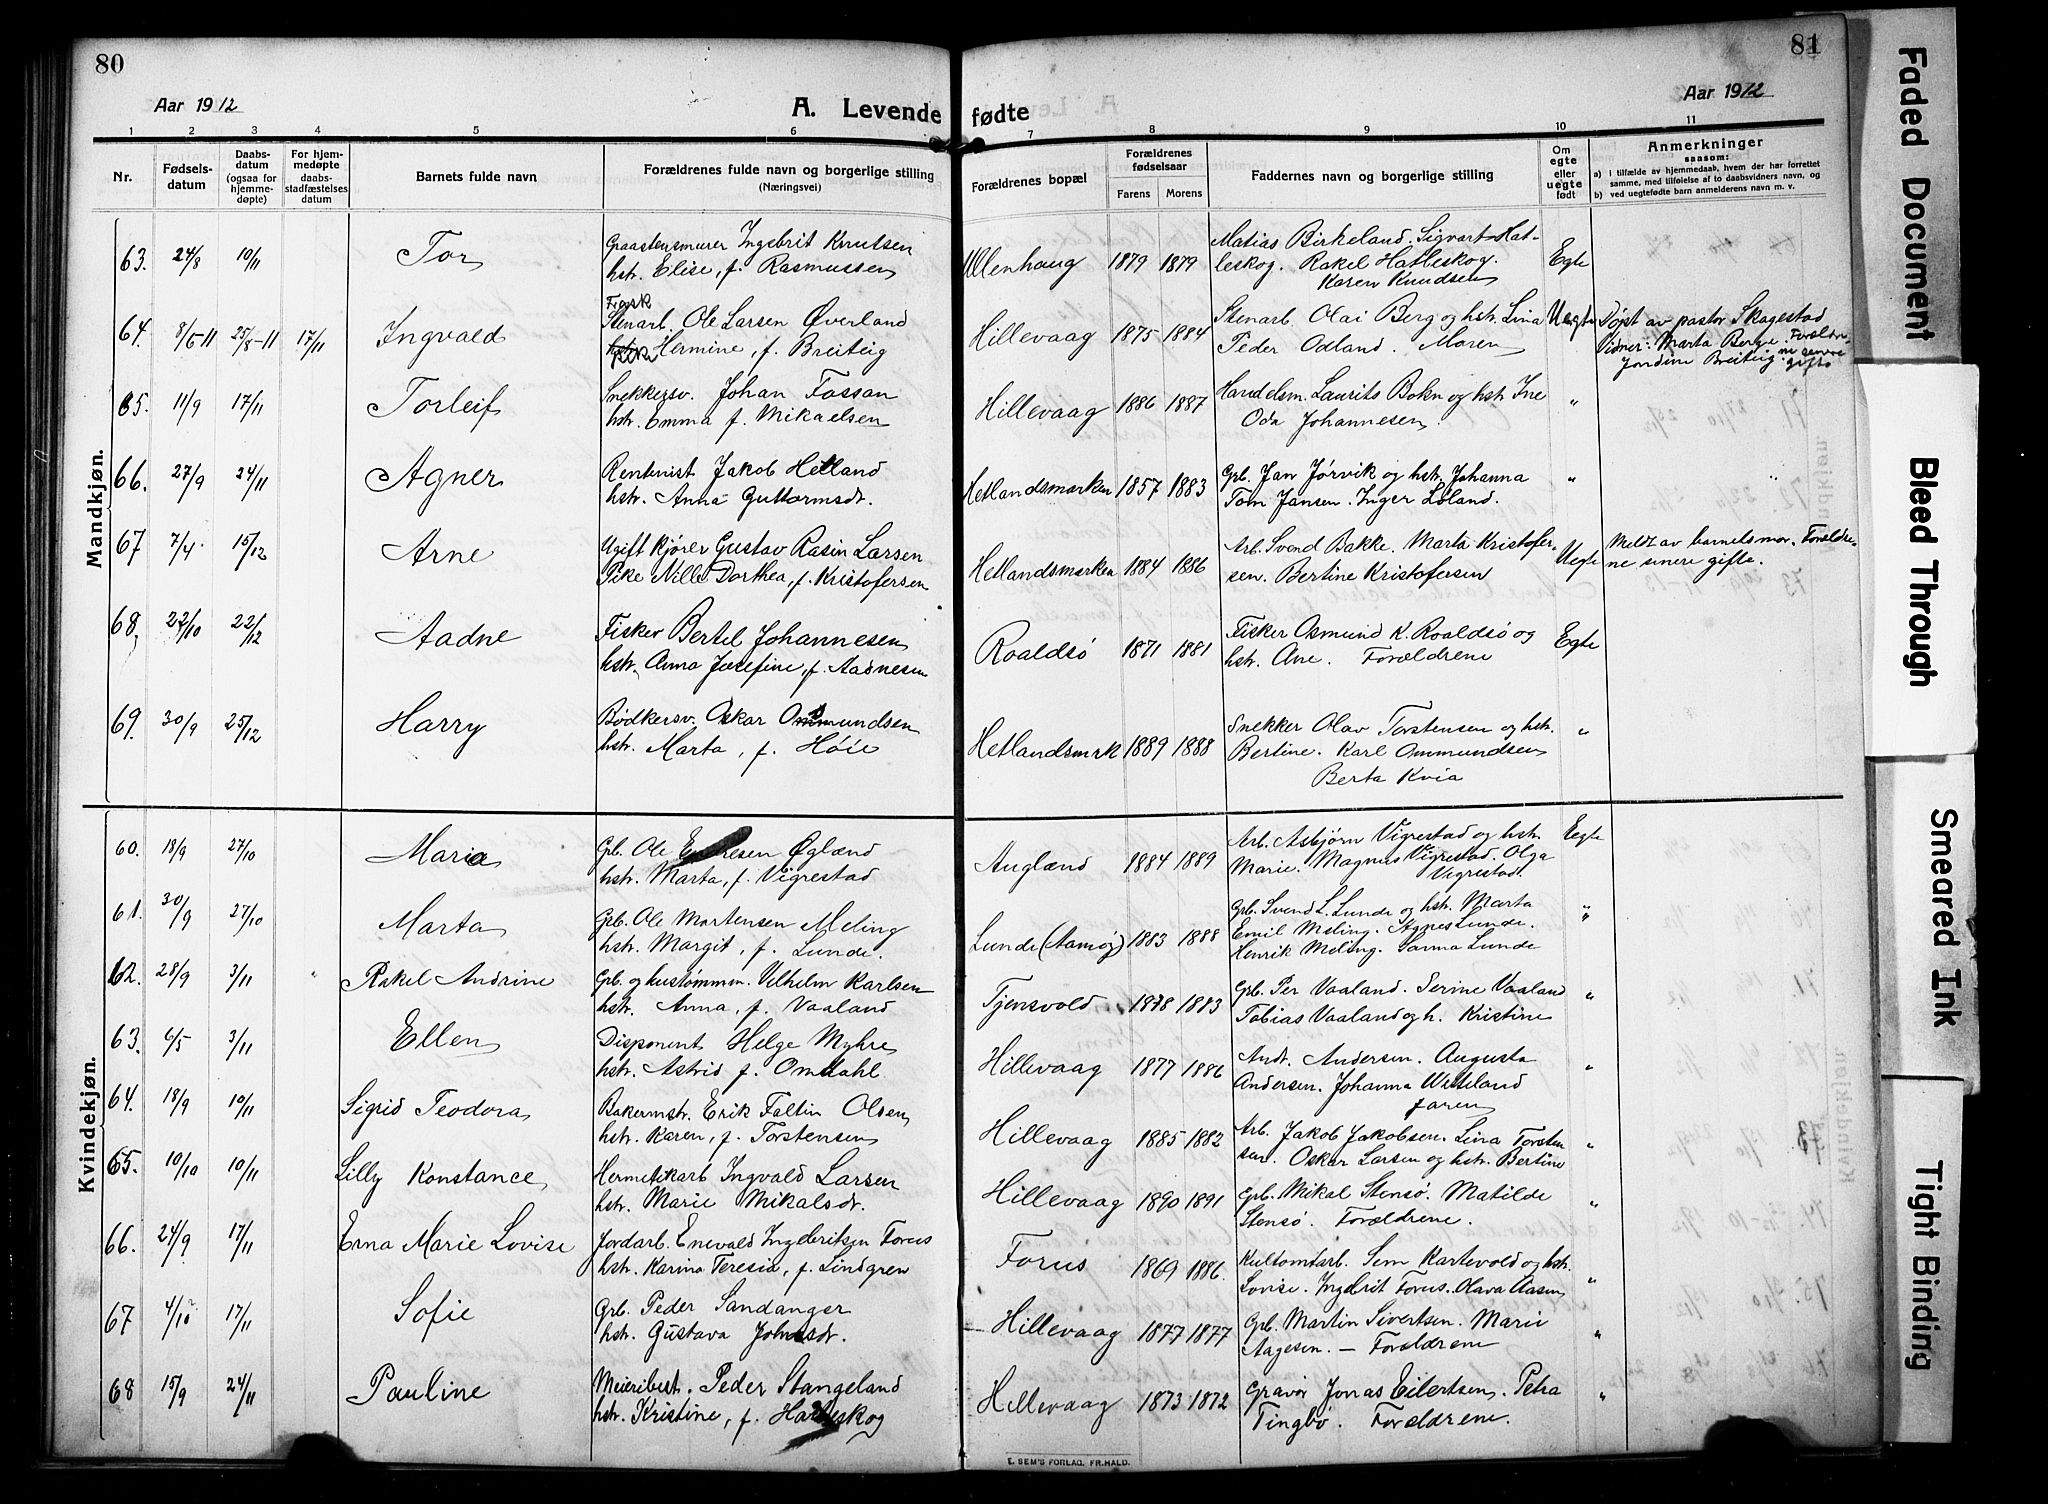 80
Aar 1912
A. Levende
1 2 3 4 5 6
Nr. Fødsels-datum Daabs-datum (ogsaa for hjemme-døpte) For hjem-medøpte daabs-stadfæstelses datum Barnets fulde navn Forældrenes fulde navn og borgerlige stilling (Næringsvei)
Mandkjøn.
63. 24/8 10/11 Tor Graastensmurer Ingebrit Knutsen
hstr. Elise, f. Rasmussen
64. 8/5-11 25/8-11 17/11 Ingvald Fisk Stenarb. Ole Larsen Øverland
Hermine, f. Breiteig
65. 11/9 17/11 Torleif Snekkersv. Johan Fossan
hstr. Emma f. Mikaelsen
66. 27/9 24/11 Agner Rentenist Jakob Hetland
hstr. Anna Guttormsdt.
67 7/4 15/12 Arne Ugift kjører Gustav Rasin Larsen
Pike Nille Dorthea, f. Kristofersen
68, 22/10 22/12 Aadne Fisker Bertel Johannesen
hstr. Anna Josefine, f. Aadnesen
69. 30/9 25/12 Harry Bødkersv. Oskar Ommundsen
hstr. Marta, f. Høie
Kvindekjøn.
60. 18/9 27/10 Maria Grb. Ole Øgland
hstr. Marta, f. Vigrestad
61. 30/9 27/10 Marta Grb. Ole Mortensen Meling
hstr. Margit, f. Lunde.
62. 28/9 3/11 Rakel Andrine Grb. og hustømmm. Vilhelm Karlsen
hstr. Anna, f. Vaaland
63. 6/5 3/11 Ellen Disponent Helge Myhre
hstr. Astrid f. Omdahl
64. 18/9 10/11 Sigrid Teodora Bakermstr. Erik Faltin Olsen
hstr. Karen, f. Torstensen
65. 10/10 10/11 Lilly Konstance Hermetikarb Ingvald Larsen
hstr. Marie Mikalsdt.
66. 24/9 17/11 Erna Marie Lovise Jordarb. Enevald Ingebritsen Forus
hstr. Karina Teresia, f. Lindgren
67 4/10 17/11 Sofie Grb. Peder Sandanger
hstr. Gustava Johnsdt.
68 15/9 24/11 Pauline Meieribest. Peder Stangeland
hstr. Kristine, f. Hatleskog
81
Aar 1912
fødte
7 8 9 10 11
Forældrenes bopæl Forældrenes fødselsaar Farens Morens Faddernes navn og borgerlige stilling Om egte eller uegte født Anmerkninger
saasom:
a) I tilfælde av hjemmedaab, hvem der har forrettet samme, med tilføielse af to daabsvidners navn, og
b) ved uegtefødte barn anmelderens navn m. v.
Ullenhaug 1879 1879 Matias Birkeland. Sigvart Hat-
leskog. Rakel Hatleskog. Egte
Karen Knudsen
Hillevaag 1875 1884 Stenarb Olai Berg og hstr. Lina Uegte Døpt av pastor Skagestad
Peder Odland. Maren Vidner: Marta Berge. Foreldre-
Jordine Breiteig ne senere gifte
Hillevaag 1886 1887 Handelsm. Laurits Bokn og hstr. Ine "
Oda Johannesen.
Hetlandsmarken 1857 1883 Grb. Jan Jørvik og hstr. Johanna "
Tom Jansen. Inger Loland.
Hetlandsmarken 1884 1886 Arb. Svend Bakke. Marta Kristofer- Uegte Meldt av barnets mor. Foreldre-
sen. Bertine Kristofersen ne senere gifte.
Roaldsø 1871 1881 Fisker Osmund K. Roaldsø og Egte
hstr. Ane. Foreldrene
Hetlandsmrk 1889 1888 Snekker Olav Torstensen og hstr. "
Bertine. Karl Ommundsen
Berta Kvia
Augland 1884 1889 Arb. Asbjørn Vigrestad og hstr. Egte
Marie. Magnus Vigrestad. Olga
Vigrestad.
Lunde (Aamøy) 1883 1888 Grb. Svend L. Lunde og hstr. Marta "
Emil Meling. Agnes Lunde.
Henrik Meling. Sanna Lunde
Tjensvold 1878 1883 Grb. Per Vaaland. Serine Vaaland "
Tobias Vaaland og h. Kristine
Hillevaag 1877 1886 Andr. Andersen. Augusta "
Andersen. Johanna Wiseland
Jaren
Hillevaag 1885 1882 Arb. Jakob Jakobsen. Lina Torsten "
sen. Oskar Larsen og hstr. Bertine
Hillevaag 1890 1891 Grb. Mikal Stensø. Matilde "
Stensø. Foreldrene.
Forus 1869 1886. Kultomtarb. Sem Kartevold og hstr. "
Lovise. Ingebrit Forus. Olava Aasen
Hillevaag 1877 1877 Grb. Martin Sivertsen. Marie "
Aagesen. — Foreldrene
Hillevaag 1873 1872 Gravør Jonas Eilertsen. Petra "
Tingbø. Foreldrene.
E. SEM'S FORLAG, FR.HALD.
Faded Document
Bleed Through
Smeared Ink
Tight Binding